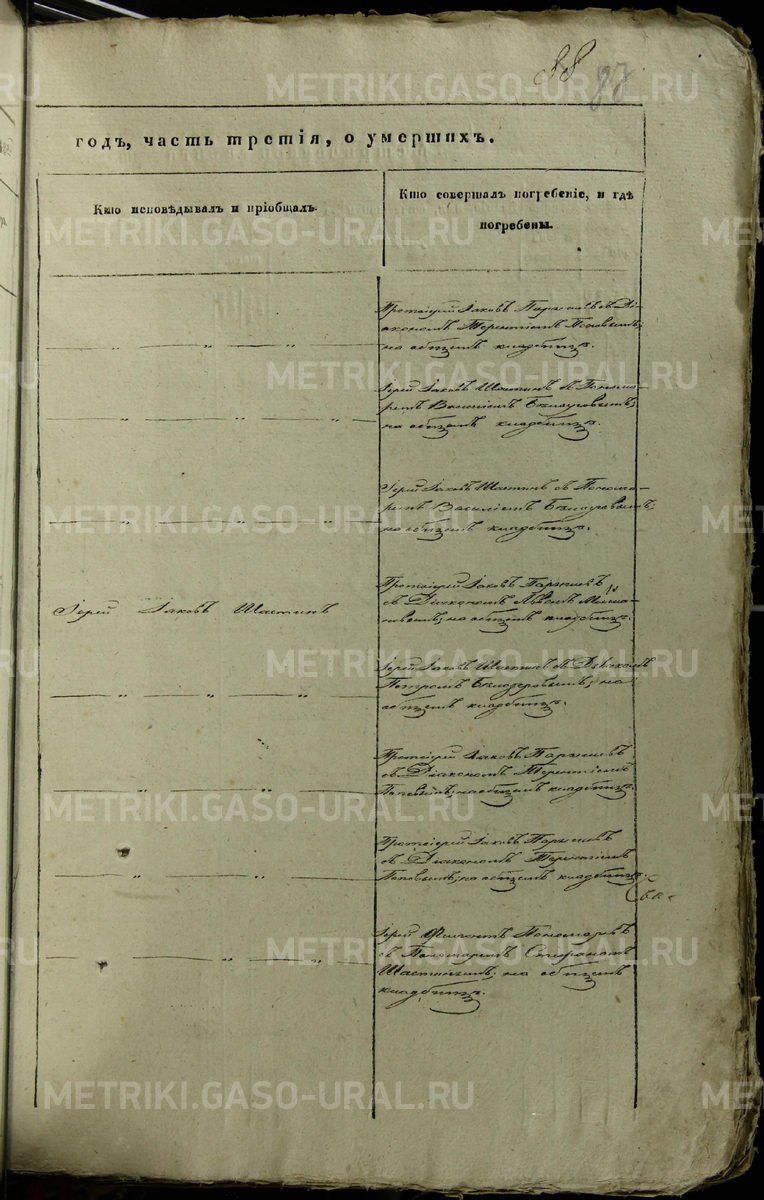 88 97
годъ, часть третія, о умершихъ.
Кто исповѣдывалъ и пріобщалъ.
Кто совершалъ погребеніе, и гдѣ
погребены.
Протоіерей Іаковъ съ Ді-
акономъ Терентіемъ Поповымъ;
на общемъ кладбищѣ.
Іерей Іаковъ Шастинъ съ Понома-
ремъ Василіемъ
на общемъ кладбищѣ.
Іерей Іаковъ Шастинъ съ Понома-
ремъ Василіемъ
на общемъ кладбищѣ.
Іерей Іаковъ Шастинъ
Протоіерей Іаковъ
съ Діакономъ
на общемъ кладбищѣ.
Іерей Іаковъ Шастинъ съ
Петромъ на
общемъ кладбищѣ.
Протоіерей Іаковъ
съ Діакономъ Терентіемъ
Поповымъ; на общемъ кладбищѣ.
Протоіерей Іаковъ
съ Діакономъ Терентіемъ
Поповымъ; на общемъ кладбищѣ.
Іерей Пономаревъ
съ Пономаремъ Стефаномъ
на общемъ
кладбищѣ.
METRIKI.GASO-URAL.RU